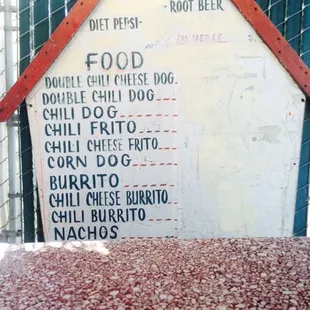 - ROOT BEER
DIET PEPSI-
FOOD
DOUBLE CHILI CHEESE DOG
DOUBLE CHILI DOG
CHILI DOG
CHILI FRITO
CHILI CHEESE FRITO
CORN DOG
BURRITO
CHILI CHEESE BURRITO
CHILI BURRITO
NACHOS